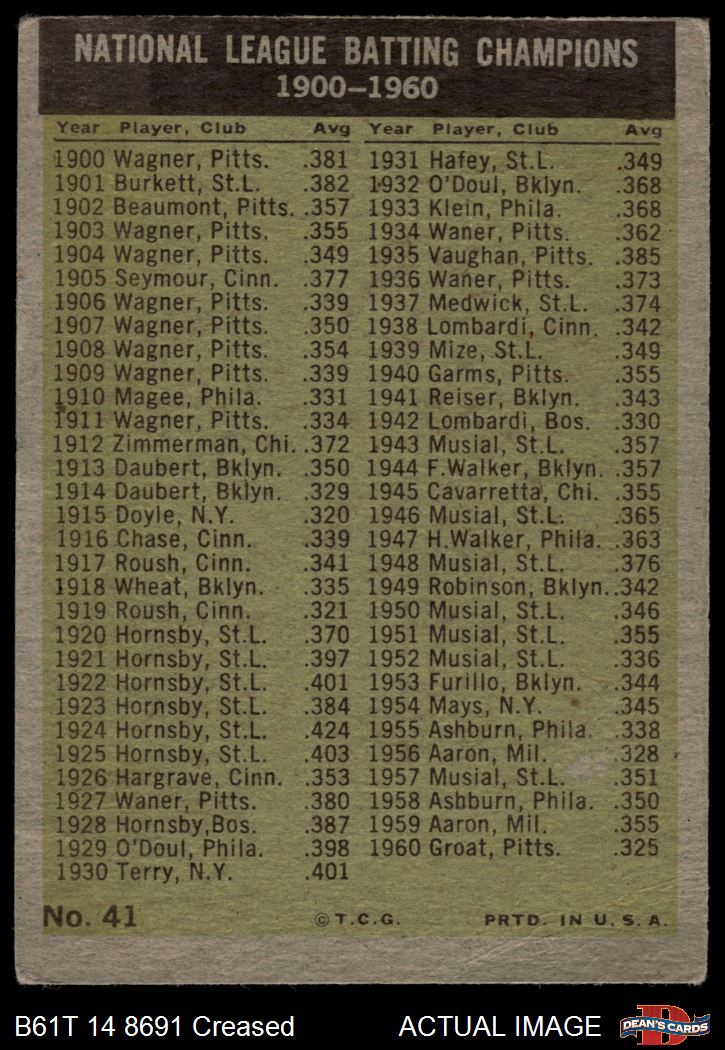 NATIONAL LEAGUE BATTING CHAMPIONS
1900–1960
Year Player, Club Avg
1900 Wagner, Pitts. .381
1901 Burkett, St.L. .382
1902 Beaumont, Pitts. .357
1903 Wagner, Pitts. .355
1904 Wagner, Pitts. .349
1905 Seymour, Cinn. .377
1906 Wagner, Pitts. .339
1907 Wagner, Pitts. .350
1908 Wagner, Pitts. .354
1909 Wagner, Pitts. .339
1910 Magee, Phila. .331
1911 Wagner, Pitts. .334
1912 Zimmerman, Chi. .372
1913 Daubert, Bklyn. .350
1914 Daubert, Bklyn. .329
1915 Doyle, N.Y. .320
1916 Chase, Cinn. .339
1917 Roush, Cinn. .341
1918 Wheat, Bklyn. .335
1919 Roush, Cinn. .321
1920 Hornsby, St.L. .370
1921 Hornsby, St.L. .397
1922 Hornsby, St.L. .401
1923 Hornsby, St.L. .384
1924 Hornsby, St.L. .424
1925 Hornsby, St.L. .403
1926 Hargrave, Cinn. .353
1927 Waner, Pitts. .380
1928 Hornsby,Bos. .387
1929 O'Doul, Phila. .398
1930 Terry, N.Y. .401
Year Player, Club Avg
1931 Hafey, St.L. .349
1932 O'Doul, Bklyn. .368
1933 Klein, Phila. .368
1934 Waner, Pitts. .362
1935 Vaughan, Pitts. .385
1936 Waner, Pitts. .373
1937 Medwick, St.L. .374
1938 Lombardi, Cinn. .342
1939 Mize, St.L. .349
1940 Garms, Pitts. .355
1941 Reiser, Bklyn. .343
1942 Lombardi, Bos. .330
1943 Musial, St.L. .357
1944 F.Walker, Bklyn. .357
1945 Cavarretta, Chi. .355
1946 Musial, St.L. .365
1947 H.Walker, Phila. .363
1948 Musial, St.L. .376
1949 Robinson, Bklyn. .342
1950 Musial, St.L. .346
1951 Musial, St.L. .355
1952 Musial, St.L. .336
1953 Furillo, Bklyn. .344
1954 Mays, N.Y. .345
1955 Ashburn, Phila. .338
1956 Aaron, Mil. .328
1957 Musial, St.L. .351
1958 Ashburn, Phila. .350
1959 Aaron, Mil. .355
1960 Groat, Pitts. .325
No. 41 © T.C.G. PRTD. IN U.S.A.
B61T 14 8691 Creased ACTUAL IMAGE
DEAN'S CARDS